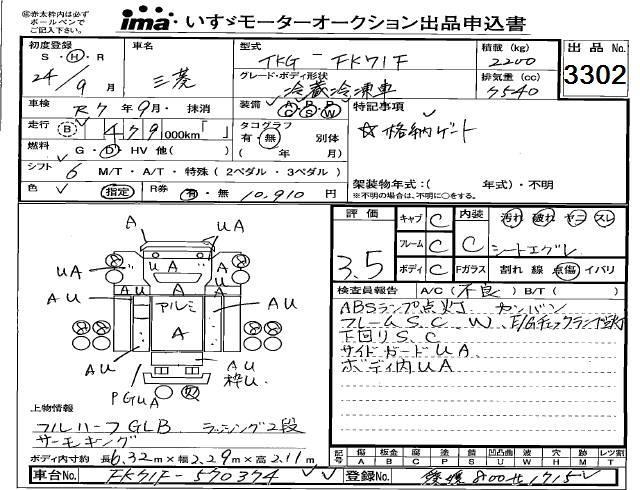 ※赤太枠内は必ず
ボールペンで
ご記入下さい。
ima いすゞモーターオークション出品申込書
初度登録
S・H・R
24/9月
車名
三菱
型式
TKG-FK71F
グレード・ボディ形状
冷蔵冷凍車
積載(kg)
2200
排気量(cc)
7540
出品No.
3302
車検 R7年9月・抹消
装備
A P P
C S W
特記事項
☆格納ゲート
走行 B 479 000km「 」
タコグラフ
有・無 別体
( 年 月)
燃料 G・D・HV 他( )
シフト 6 M/T・A/T・特殊(2ペダル・3ペダル)
架装物年式:( 年式)・不明
※不明の場合は、不明に○をする。
色 指定
R券 有・無 10,910円
評価
3.5
キャブ C
フレーム C
ボディ C
内装 C
汚れ 破れ ヤニ スレ
シートエグレ
Fガラス 割れ 線 点傷 イバリ
検査員報告 A/C(不良)B/T( )
ABSランプ点灯 カンバン
フレームS.C W、E/Gチェックランプ点灯
下回りS.C
サイドガードUA
ボディ内UA
A
UA
UA
U A
A
A
AU
AU
AU
アルミ
A
AU
AU
AU
枠U
PGUA
上物情報
フルハーフGLB ラッシング2段
サーモキング
ボディ内寸約 長6.32m×幅2.29m×高2.11m
記号
傷 板金 腐 塗 錆 凹凸曲 波 穴 跡 レツ割
A B C P S U W H M T
車台No. FK71F-570374
登録No. 愛媛800せ1715